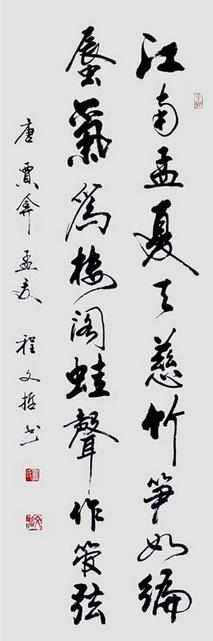 江南孟夏天慈竹笋如編
蜃氣為樓閣蛙聲作管弦
唐 賈弇 孟夏 程文哲书